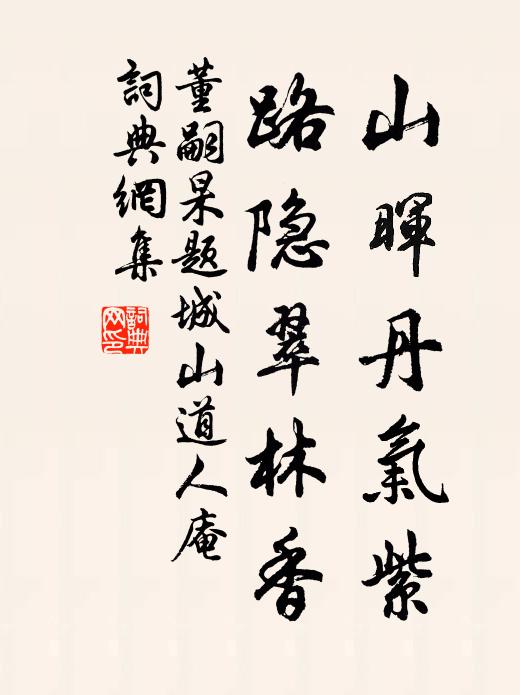 山暉丹氣紫
路隐翠林香
董嗣杲题城山道人庵
詞典網集
詞典
网印